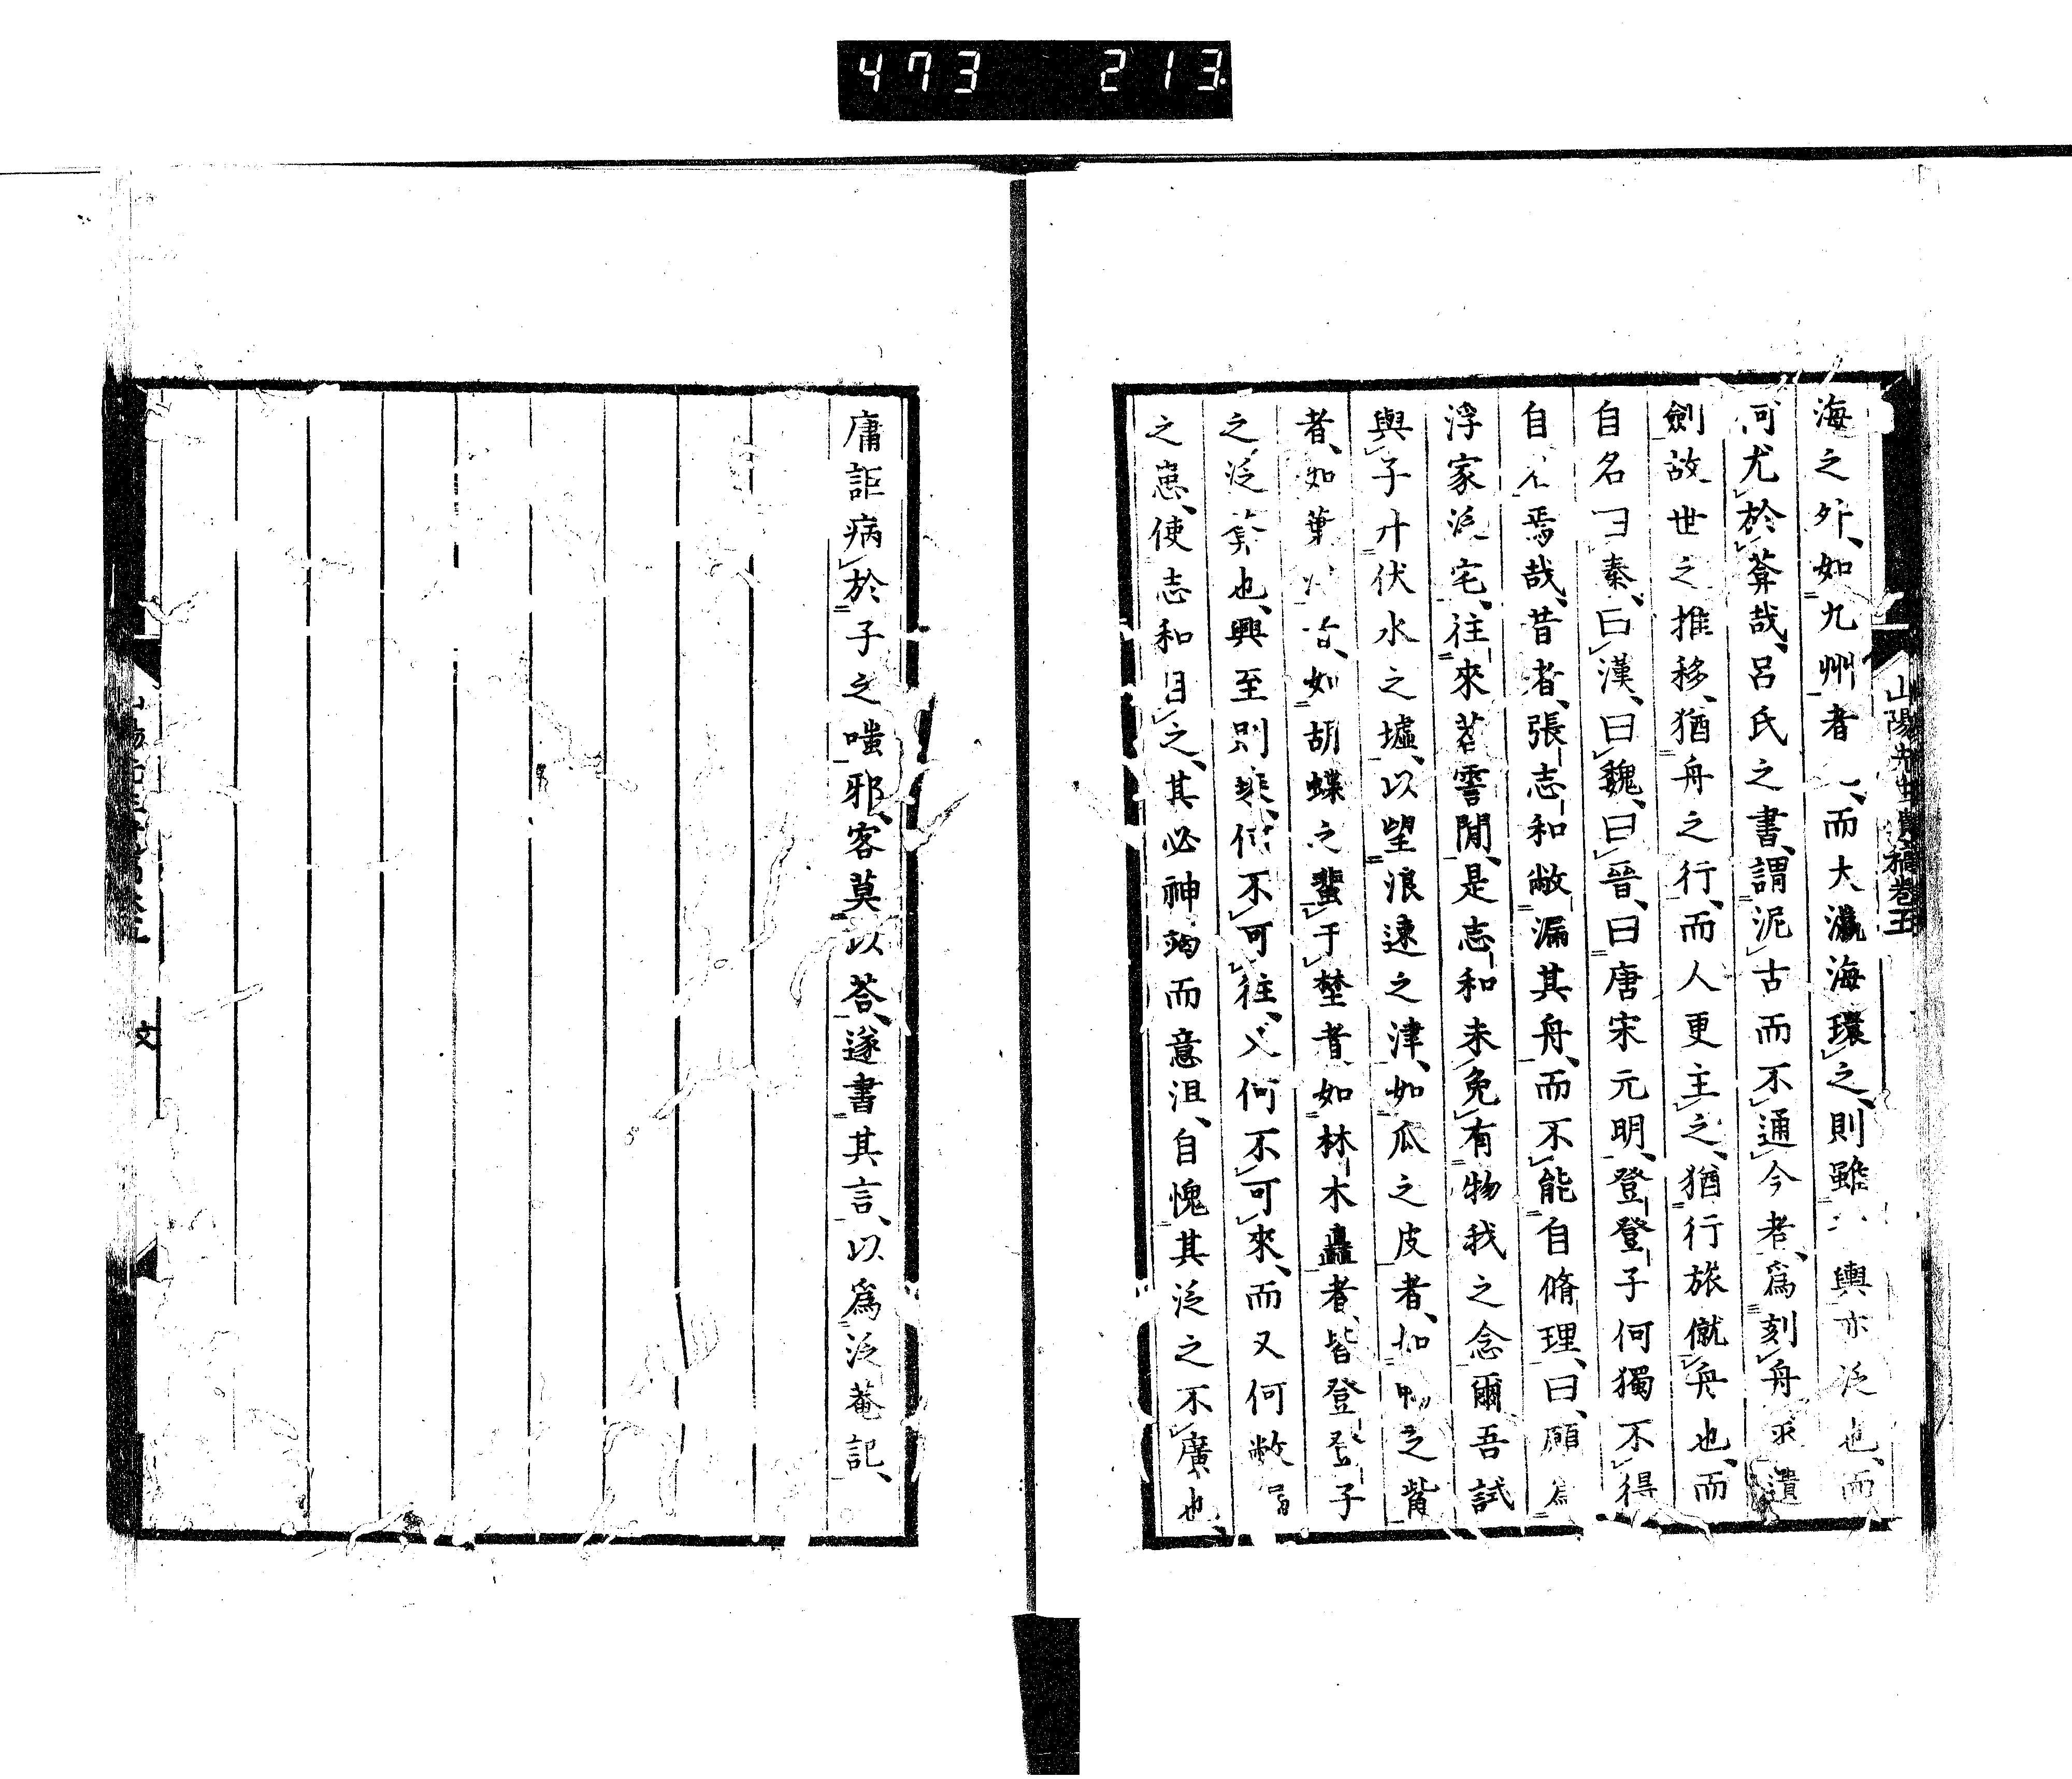 473 213
山陽先生遺稿卷五
海之外、如九州者 、而大瀛海環之、則雖 輿亦泛也、而
何尤於葊哉、呂氏之書、謂泥古而不通今者、爲刻舟求遺
劍、故世之推移、猶舟之行、而人更主之、猶行旅僦舟也、而
自名曰秦、曰漢、曰魏、曰晉、曰唐宋元明、登登子何獨不得
自 焉哉、昔者、張志和敝漏其舟、而不能自脩理、曰、願爲
浮家泛宅、往來苕霅閒、是志和未免有物我之念爾、吾試
與子升伏水之墟、以望浪速之津、如瓜之皮者、如鴨之觜
者、如葉 者、如胡蝶之蠻于埜者、如林木矗者、皆登登子
之泛葊也、興至則乘、何不可往、又何不可來、而又何敝漏
之患、使志和目之、其必神竭而意沮、自愧其泛之不廣也、
庸詎病於子之嗤邪、客莫以荅、遂書其言、以爲泛菴記、
文